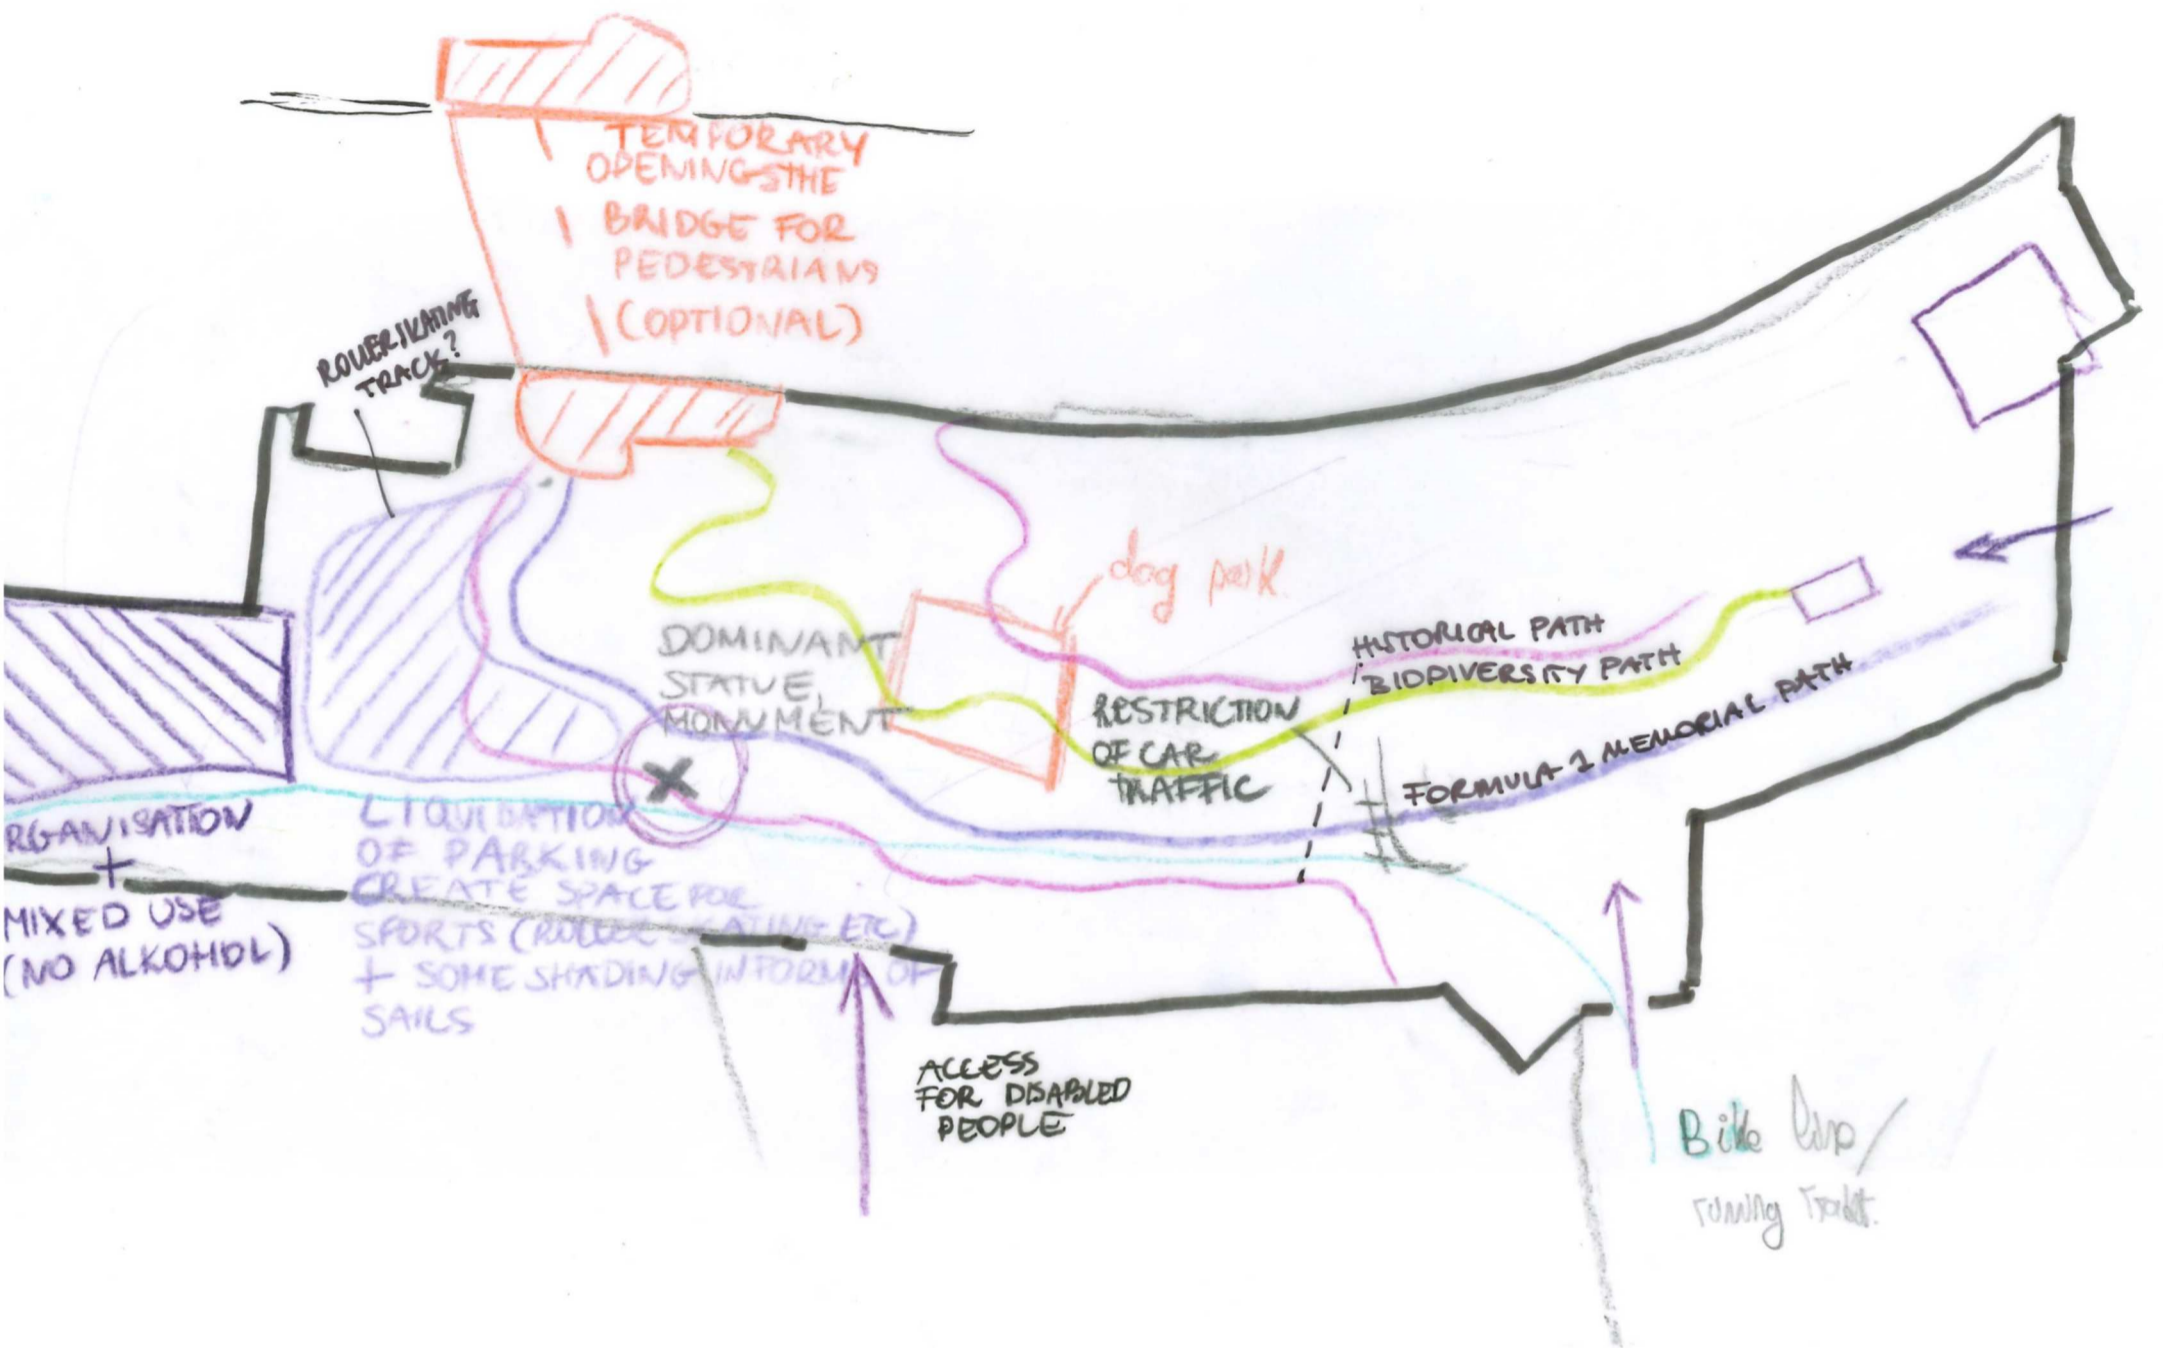 TEMPORARY
OPENINGSTHE
BRIDGE FOR
PEDESTRIANS
(OPTIONAL)
ROLLERSKATING
TRACK?
dog park
DOMINANT
STATUE,
MONUMENT
HISTORICAL PATH
BIODIVERSITY PATH
FORMULA 1 MEMORIAL PATH
RESTRICTION
OF CAR
TRAFFIC
RGANISATION
+
MIXED USE
(NO ALKOHOL)
LIQUIDATION
OF PARKING
CREATE SPACE FOR
SPORTS (ROLLER SKATING ETC)
+ SOME SHADING IN FORM OF
SAILS
ACCESS
FOR DISABLED
PEOPLE
Bike line/
running